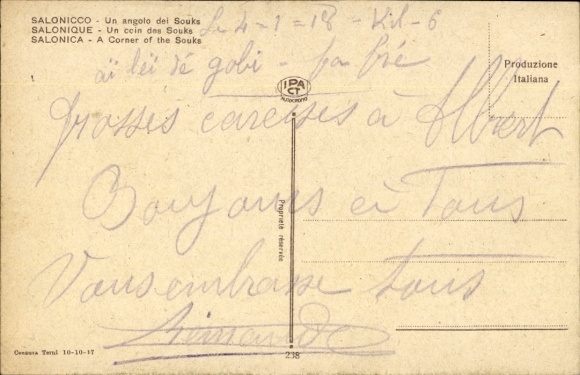 SALONICCO - Un angolo dei Souks
SALONIQUE - Un coin des Souks
SALONICA - A Corner of the Souks
Le 4-1=18 - Kil-6
Produzione
Italiana
IPA
CT
AUTOCROMO
gobi -
Grosses caresses à Albert
Bonjours à Tous
Vous embrasse tous
Propriété réservée
Censura Terni 10-10-17
238